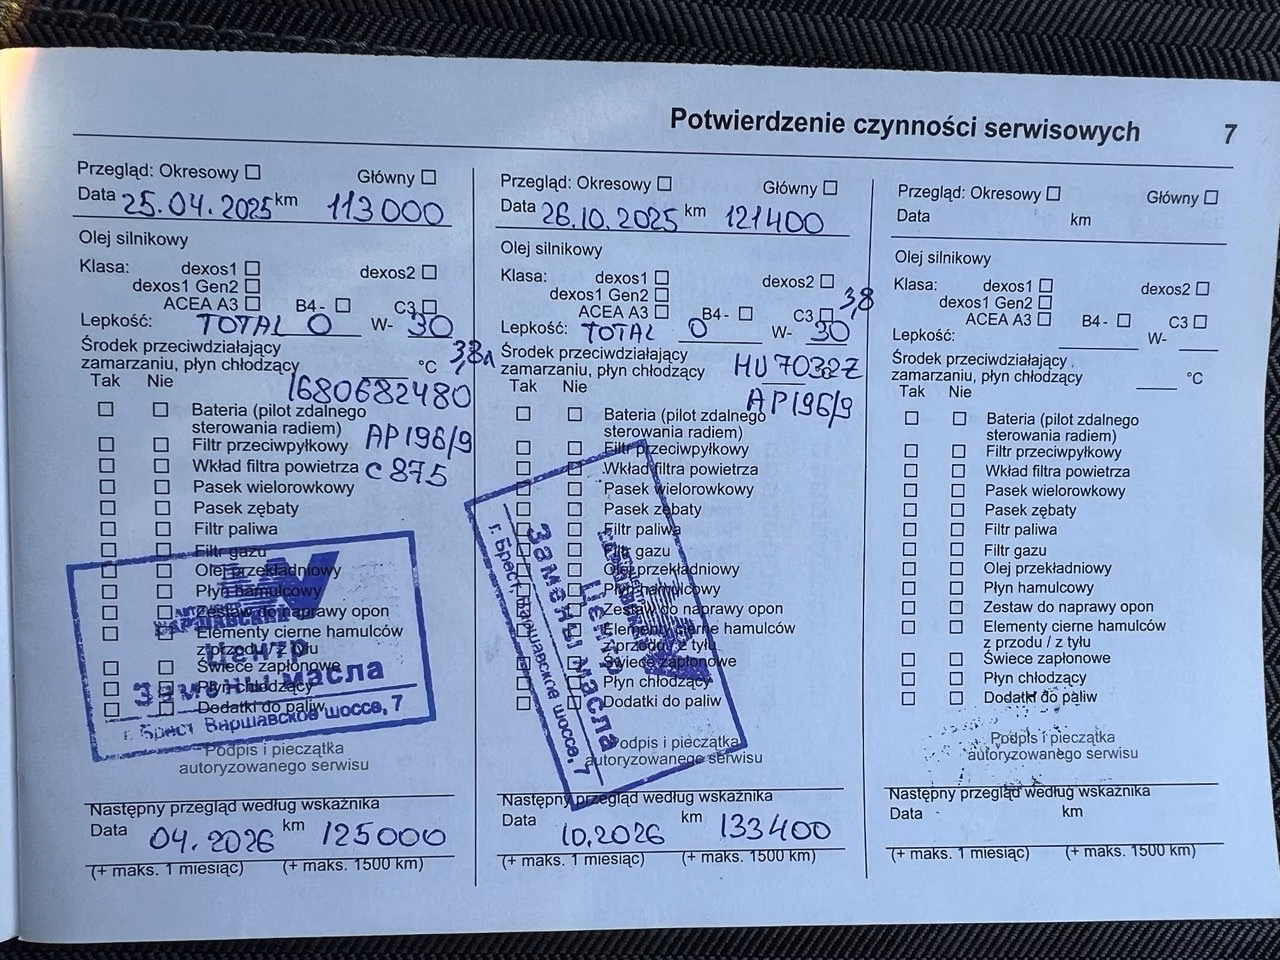 Potwierdzenie czynności serwisowych 7
Przegląd: Okresowy Główny
Data 25.04.2025 km 113000
Olej silnikowy
Klasa: dexos1 dexos2
dexos1 Gen2
ACEA A3 B4- C3
Lepkość: TOTAL 0 W- 30
Środek przeciwdziałający 3,8л
zamarzaniu, płyn chłodzący °C
Tak Nie 1680682480
Bateria (pilot zdalnego
sterowania radiem)
Filtr przeciwpyłkowy AP196/9
Wkład filtra powietrza C875
Pasek wielorowkowy
Pasek zębaty
Filtr paliwa
Filtr gazu
Olej przekładniowy
Płyn hamulcowy
Zestaw do naprawy opon
Elementy cierne hamulców
z przodu / z tyłu
Świece zapłonowe
Płyn chłodzący
Dodatki do paliw
Центр
Замены масла
г. Брест Варшавское шоссе, 7
Podpis i pieczątka
autoryzowanego serwisu
Następny przegląd według wskaźnika
Data 04.2026 km 125000
(+ maks. 1 miesiąc) (+ maks. 1500 km)
Przegląd: Okresowy Główny
Data 26.10.2025 km 121400
Olej silnikowy
Klasa: dexos1 dexos2
dexos1 Gen2
ACEA A3 B4- C3 3,8
Lepkość: TOTAL 0 W- 30
Środek przeciwdziałający
zamarzaniu, płyn chłodzący HU 7032Z
Tak Nie AP196/9
Bateria (pilot zdalnego
sterowania radiem)
Filtr przeciwpyłkowy
Wkład filtra powietrza
Pasek wielorowkowy
Pasek zębaty
Filtr paliwa
Filtr gazu
Olej przekładniowy
Płyn hamulcowy
Zestaw do naprawy opon
Elementy cierne hamulców
z przodu / z tyłu
Świece zapłonowe
Płyn chłodzący
Dodatki do paliw
Центр
Замены масла
г. Брест, Варшавское шоссе, 7
Podpis i pieczątka
autoryzowanego serwisu
Następny przegląd według wskaźnika
Data 10.2026 km 133400
(+ maks. 1 miesiąc) (+ maks. 1500 km)
Przegląd: Okresowy Główny
Data km
Olej silnikowy
Klasa: dexos1 dexos2
dexos1 Gen2
ACEA A3 B4- C3
Lepkość: W-
Środek przeciwdziałający
zamarzaniu, płyn chłodzący °C
Tak Nie
Bateria (pilot zdalnego
sterowania radiem)
Filtr przeciwpyłkowy
Wkład filtra powietrza
Pasek wielorowkowy
Pasek zębaty
Filtr paliwa
Filtr gazu
Olej przekładniowy
Płyn hamulcowy
Zestaw do naprawy opon
Elementy cierne hamulców
z przodu / z tyłu
Świece zapłonowe
Płyn chłodzący
Dodatki do paliw
Podpis i pieczątka
autoryzowanego serwisu
Następny przegląd według wskaźnika
Data km
(+ maks. 1 miesiąc) (+ maks. 1500 km)